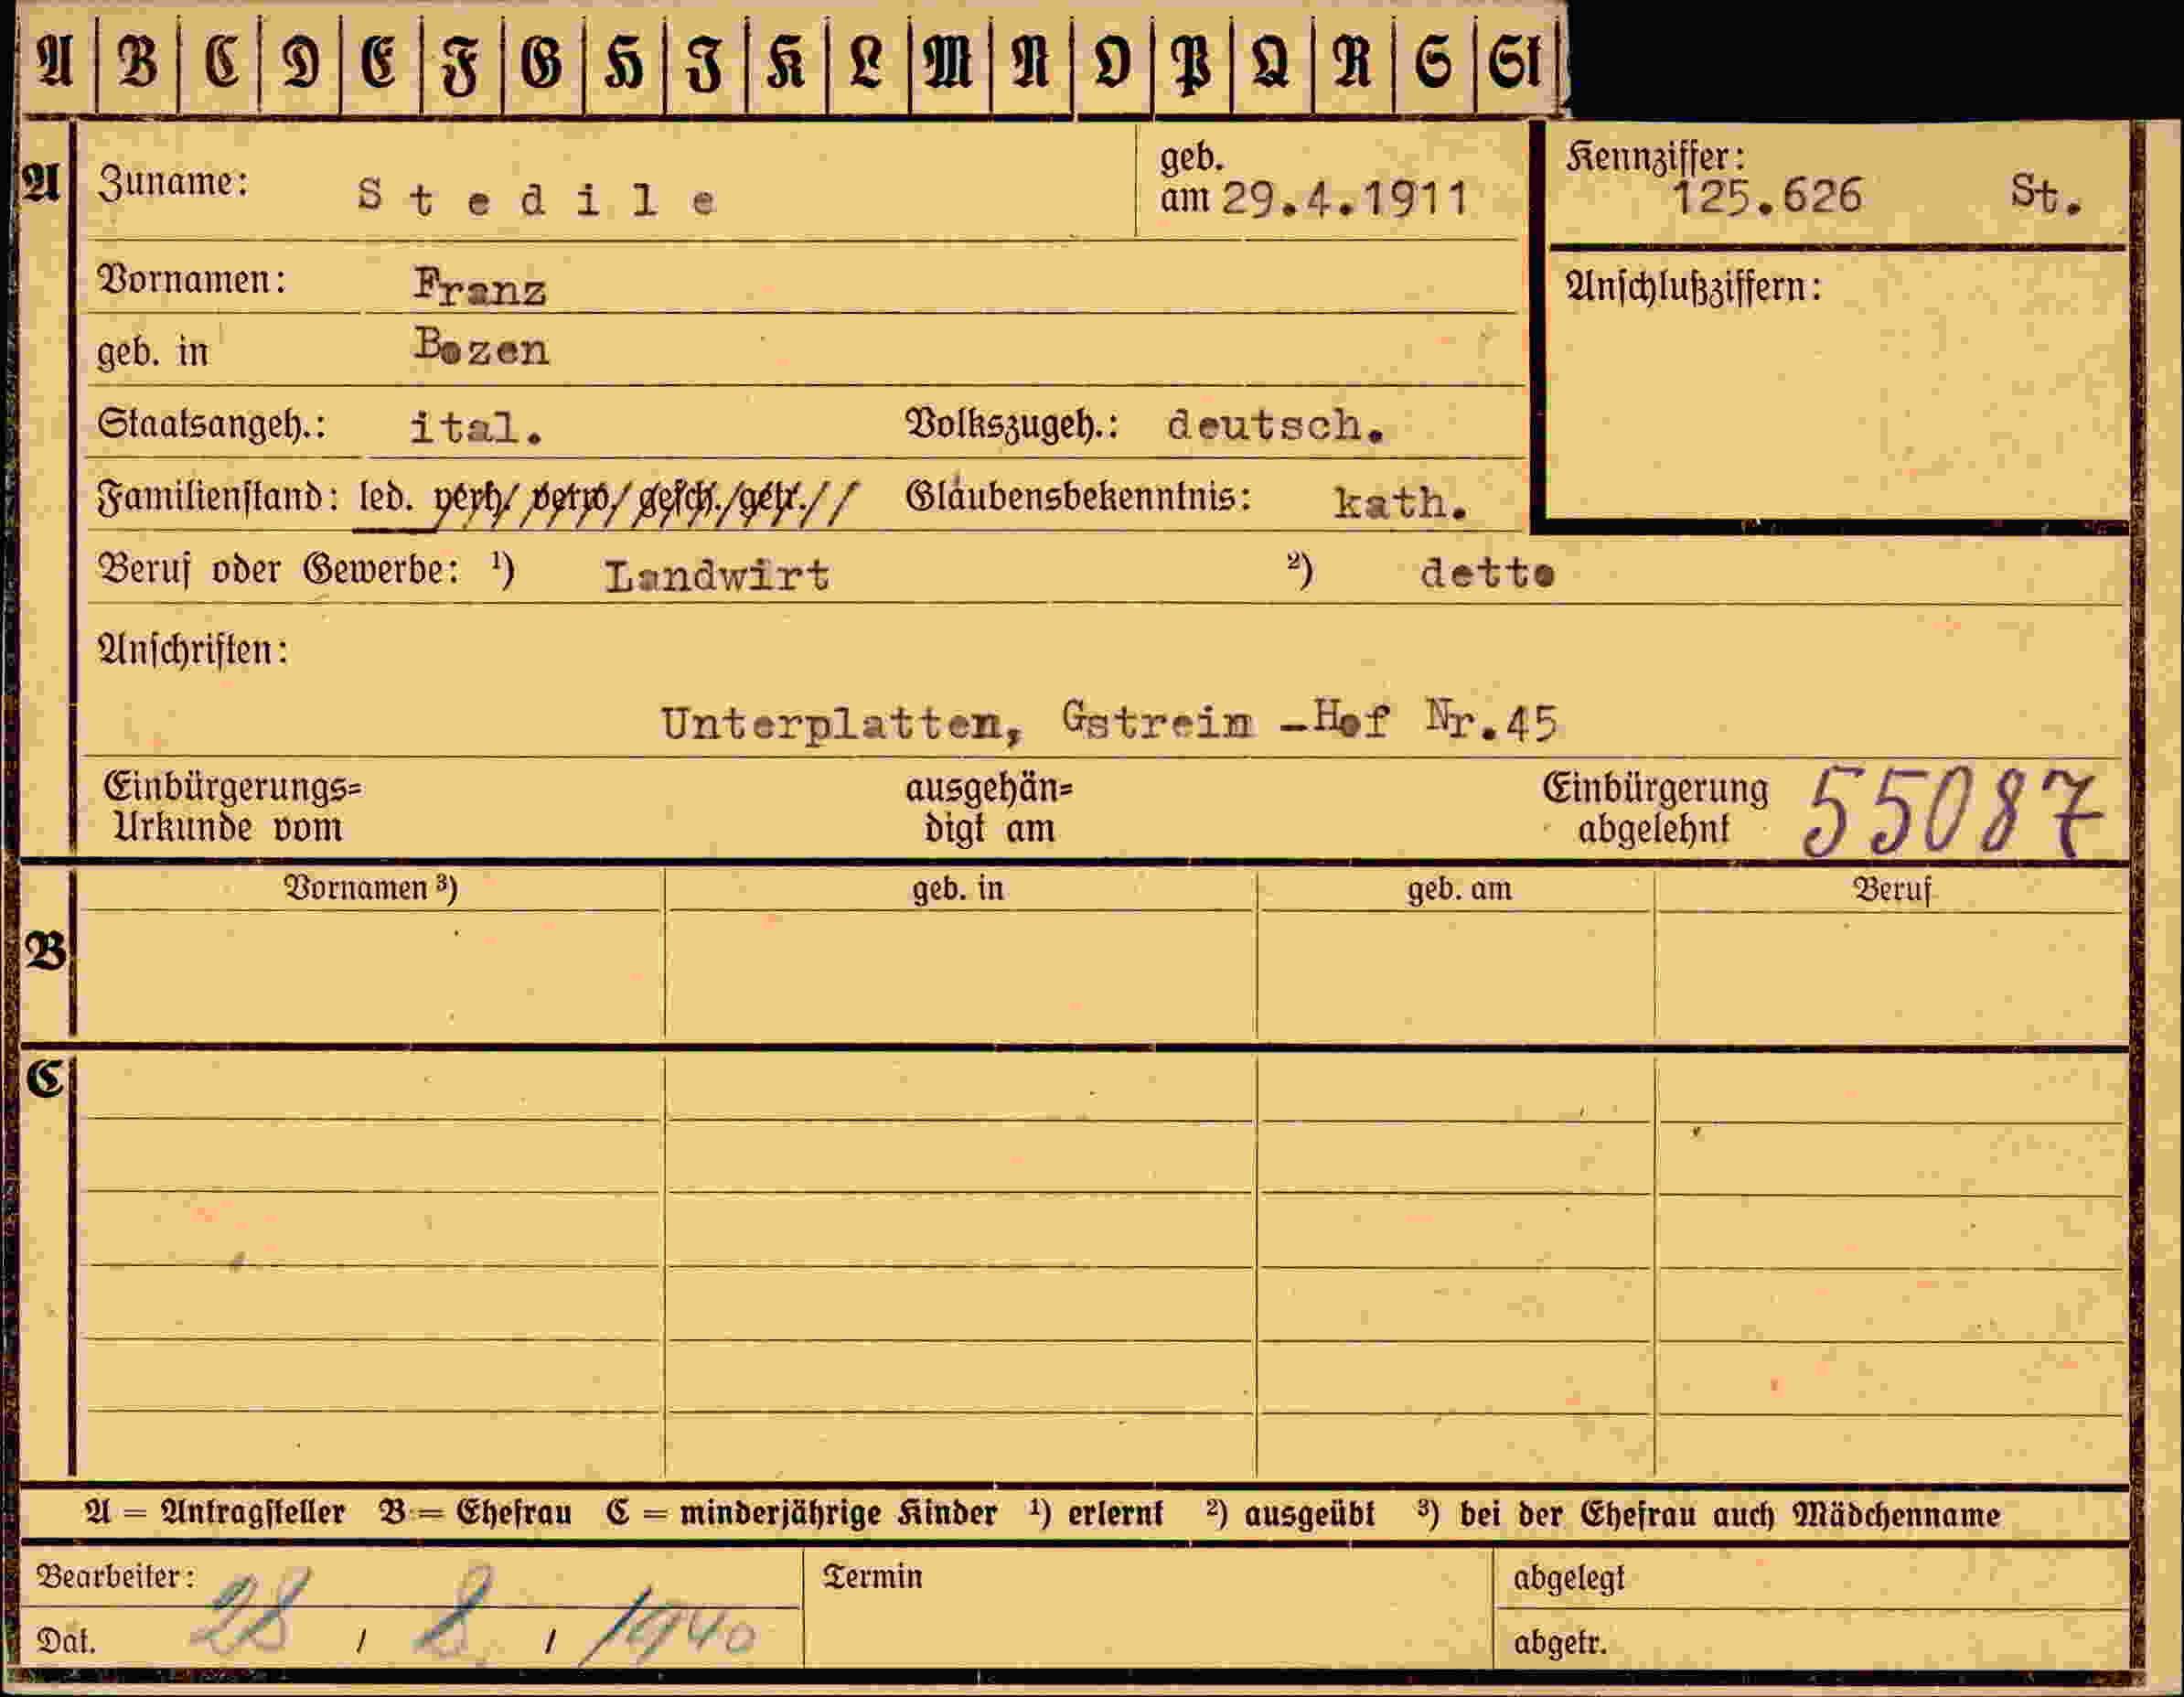 A B C D E F G H I K L M N O P Q R S St
A Zuname: Stedile geb. am 29.4.1911 Kennziffer: 125.626 St.
Vornamen: Franz Anschlußziffern:
geb. in Bozen
Staatsangeh.: ital. Volkszugeh.: deutsch.
Familienstand: led. verh/ verw/ gesch./getr.// Glaubensbekenntnis: kath.
Beruf oder Gewerbe: ¹) Landwirt ²) detto
Anschriften:
Unterplatten, Gstrein -Hof Nr.45
Einbürgerungs= ausgehän= Einbürgerung 55087
Urkunde vom digt am abgelehnt
Vornamen ³) geb. in geb. am Beruf
B
C
A = Antragsteller B = Ehefrau C = minderjährige Kinder ¹) erlernt ²) ausgeübt ³) bei der Ehefrau auch Mädchenname
Bearbeiter: Termin abgelegt
Dat. 28 / 8 / 1940 abgetr.